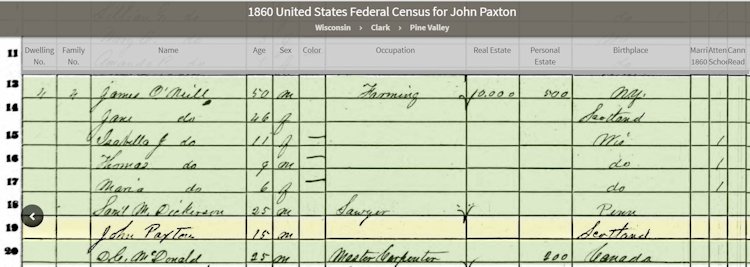 1860 United States Federal Census for John Paxton
Wisconsin › Clark › Pine Valley
11
Dwelling No. Family No. Name Age Sex Color Occupation Real Estate Personal Estate Birthplace Marri 1860 Atten Schoo Cann Read
13 4 4 James O'Neill 50 m Farming 10,000 500 N.Y.
14 Jane do 46 f Scotland
15 Isabella J do 11 f Wis 1
16 Thomas do 9 m do 1
17 Maria do 6 f do 1
18 Saml M. Dickerson 25 m Sawyer Penn
19 John Paxton 15 m Scotland
20 McDonald 25 m Master Carpenter 200 Canada